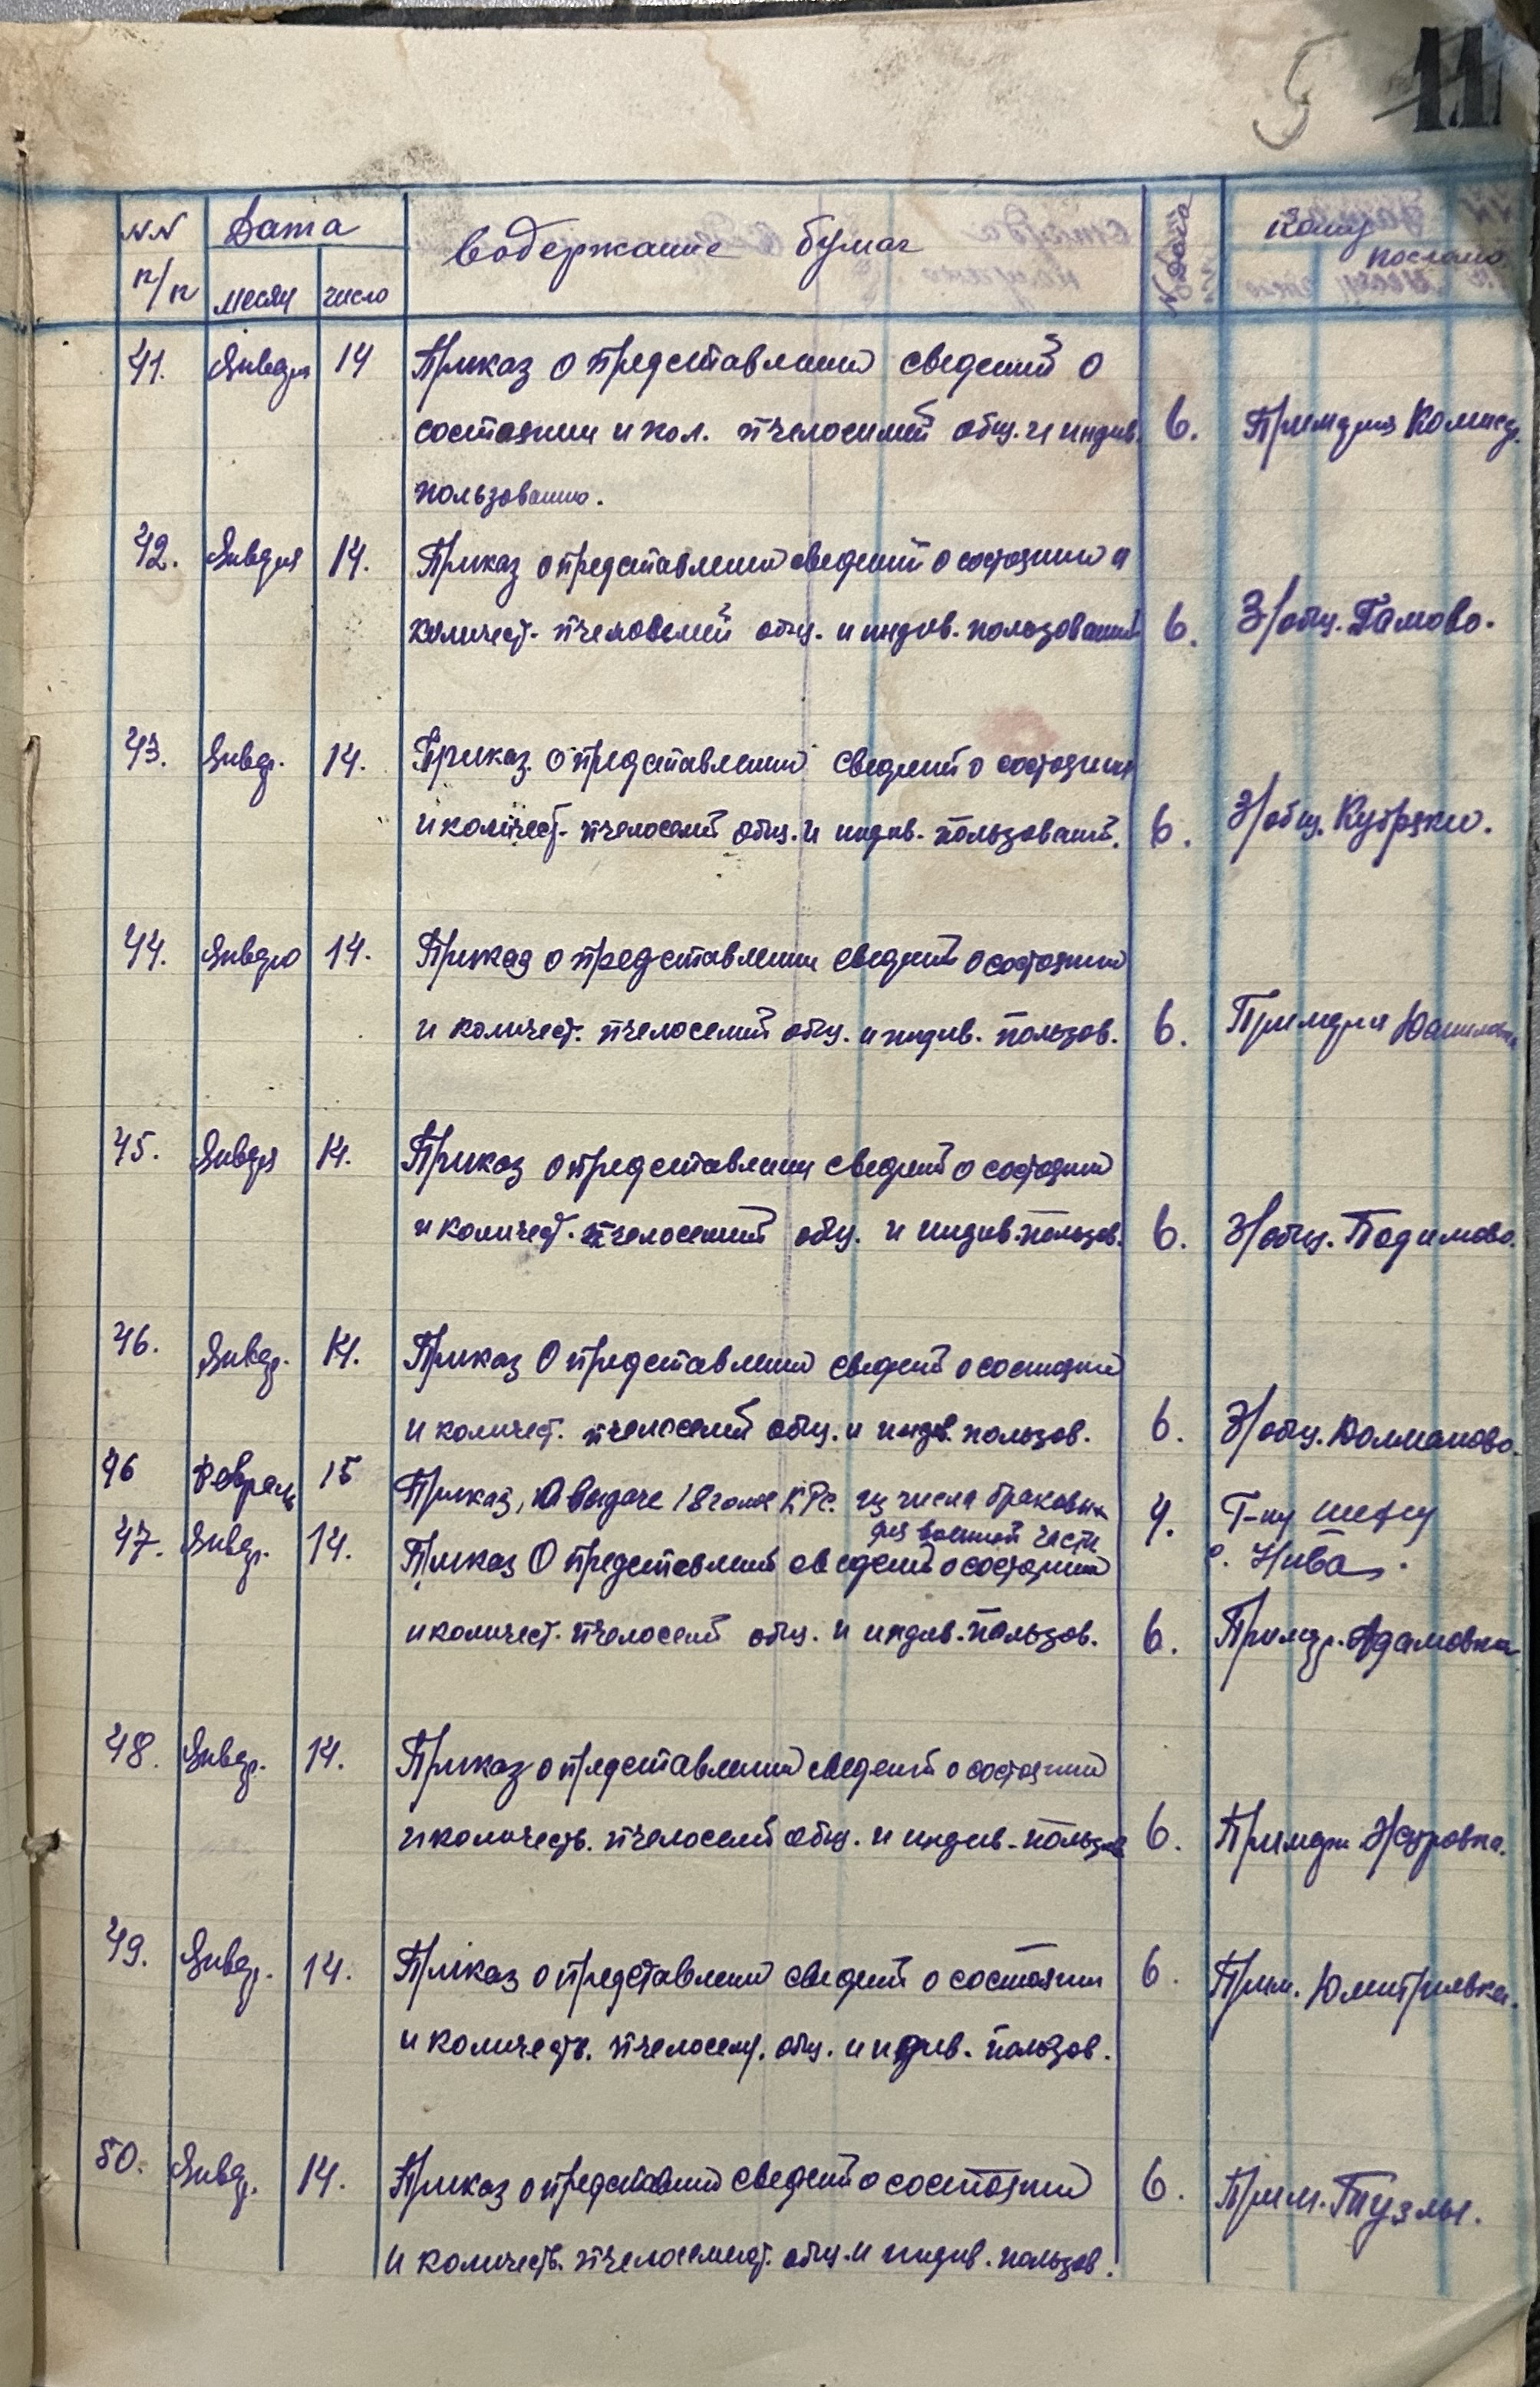 5 11
NN п/п Дата месяц число Содержание бумаг Кому послано
41. Января 14 Приказ о представлении сведений о
состоянии и кол. пчелосемей общ. и индив. 6.
пользованию.
42. Января 14. Приказ о представлении сведений о состоянии и
количест. пчелосемей общ. и индив. пользований 6. З/общ. Гамово.
43. Январ. 14. Приказ о представлении сведений о состоянии
и количест. пчелосемей общ. и индив. пользований. 6. З/общ. Кубряки.
44. Января 14. Приказ о представлении сведений о состоянии
и количест. пчелосемей общ. и индив. пользов. 6. Примария
45. Января 14. Приказ о представлении сведений о состоянии
и количест. пчелосемей общ. и индив. пользов. 6. З/общ. Подимово.
46. Январ. 14. Приказ О представлении сведений о состоянии
и количест. пчелосемей общ. и индив. пользов. 6. З/общ. Колманово.
46 Февраль 15 Приказ, О выдаче 18 голов КРс. из числа браковых 4. Г-ну шефу
для военной части
с. Нива.
47. Январ. 14. Приказ О представлений сведений о состоянии
и количест. пчелосемей общ. и индив. пользов. 6. Примар. Адамовка
48. Январ. 14. Приказ о представлении сведений о состоянии
и количеств. пчелосемей общ. и индив. пользов 6. Примари Журовка.
49. Январ. 14. Приказ о представлении сведений о состоянии 6. Прим. Дмитриевка.
и количеств. пчелосем. общ. и индив. пользов.
50. Январ. 14. Приказ о представлении сведений о состоянии 6. Прим. Тузлы.
и количеств. общ. и индив. пользов.